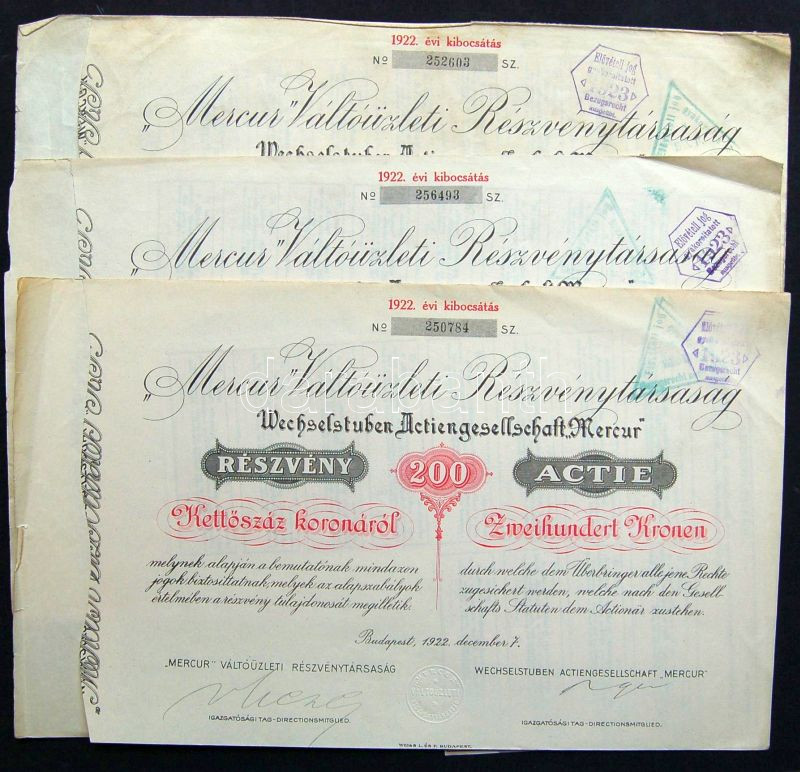 1922. évi kibocsátás
Nº 252603 SZ.
Elővételi jog
gyakoroltatott
1923
Bezugsrecht
ausgeübt.
„Mercur” Váltóüzleti Részvénytársaság
Wechselstuben Actiengesellschaft „Mercur”
1922. évi kibocsátás
Nº 256493 SZ.
Elővételi jog
gyakoroltatott
1923
Bezugsrecht
ausgeübt.
„Mercur” Váltóüzleti Részvénytársaság
1922. évi kibocsátás
Nº 250784 SZ.
Elővételi jog
1923
Bezugsrecht
ausgeübt.
„Mercur” Váltóüzleti Részvénytársaság
Wechselstuben Actiengesellschaft „Mercur”
RÉSZVÉNY 200 ACTIE
Kettőszáz koronáról Zweihundert Kronen
melynek alapján a bemutatónak mindazon
jogok biztosíttatnak, melyek az alapszabályok
értelmében a részvény tulajdonosát megilletik.
durch welche dem Überbringer alle jene Rechte
zugesichert werden, welche nach den Gesell-
schafts Statuten dem Actionär zustehen.
Budapest, 1922. december 7.
„MERCUR” VÁLTÓÜZLETI RÉSZVÉNYTÁRSASÁG
WECHSELSTUBEN ACTIENGESELLSCHAFT „MERCUR”
IGAZGATÓSÁGI TAG-DIRECTIONSMITGLIED.
IGAZGATÓSÁGI TAG-DIRECTIONSMITGLIED.
WEISS L. ÉS F. BUDAPEST.
darabanth